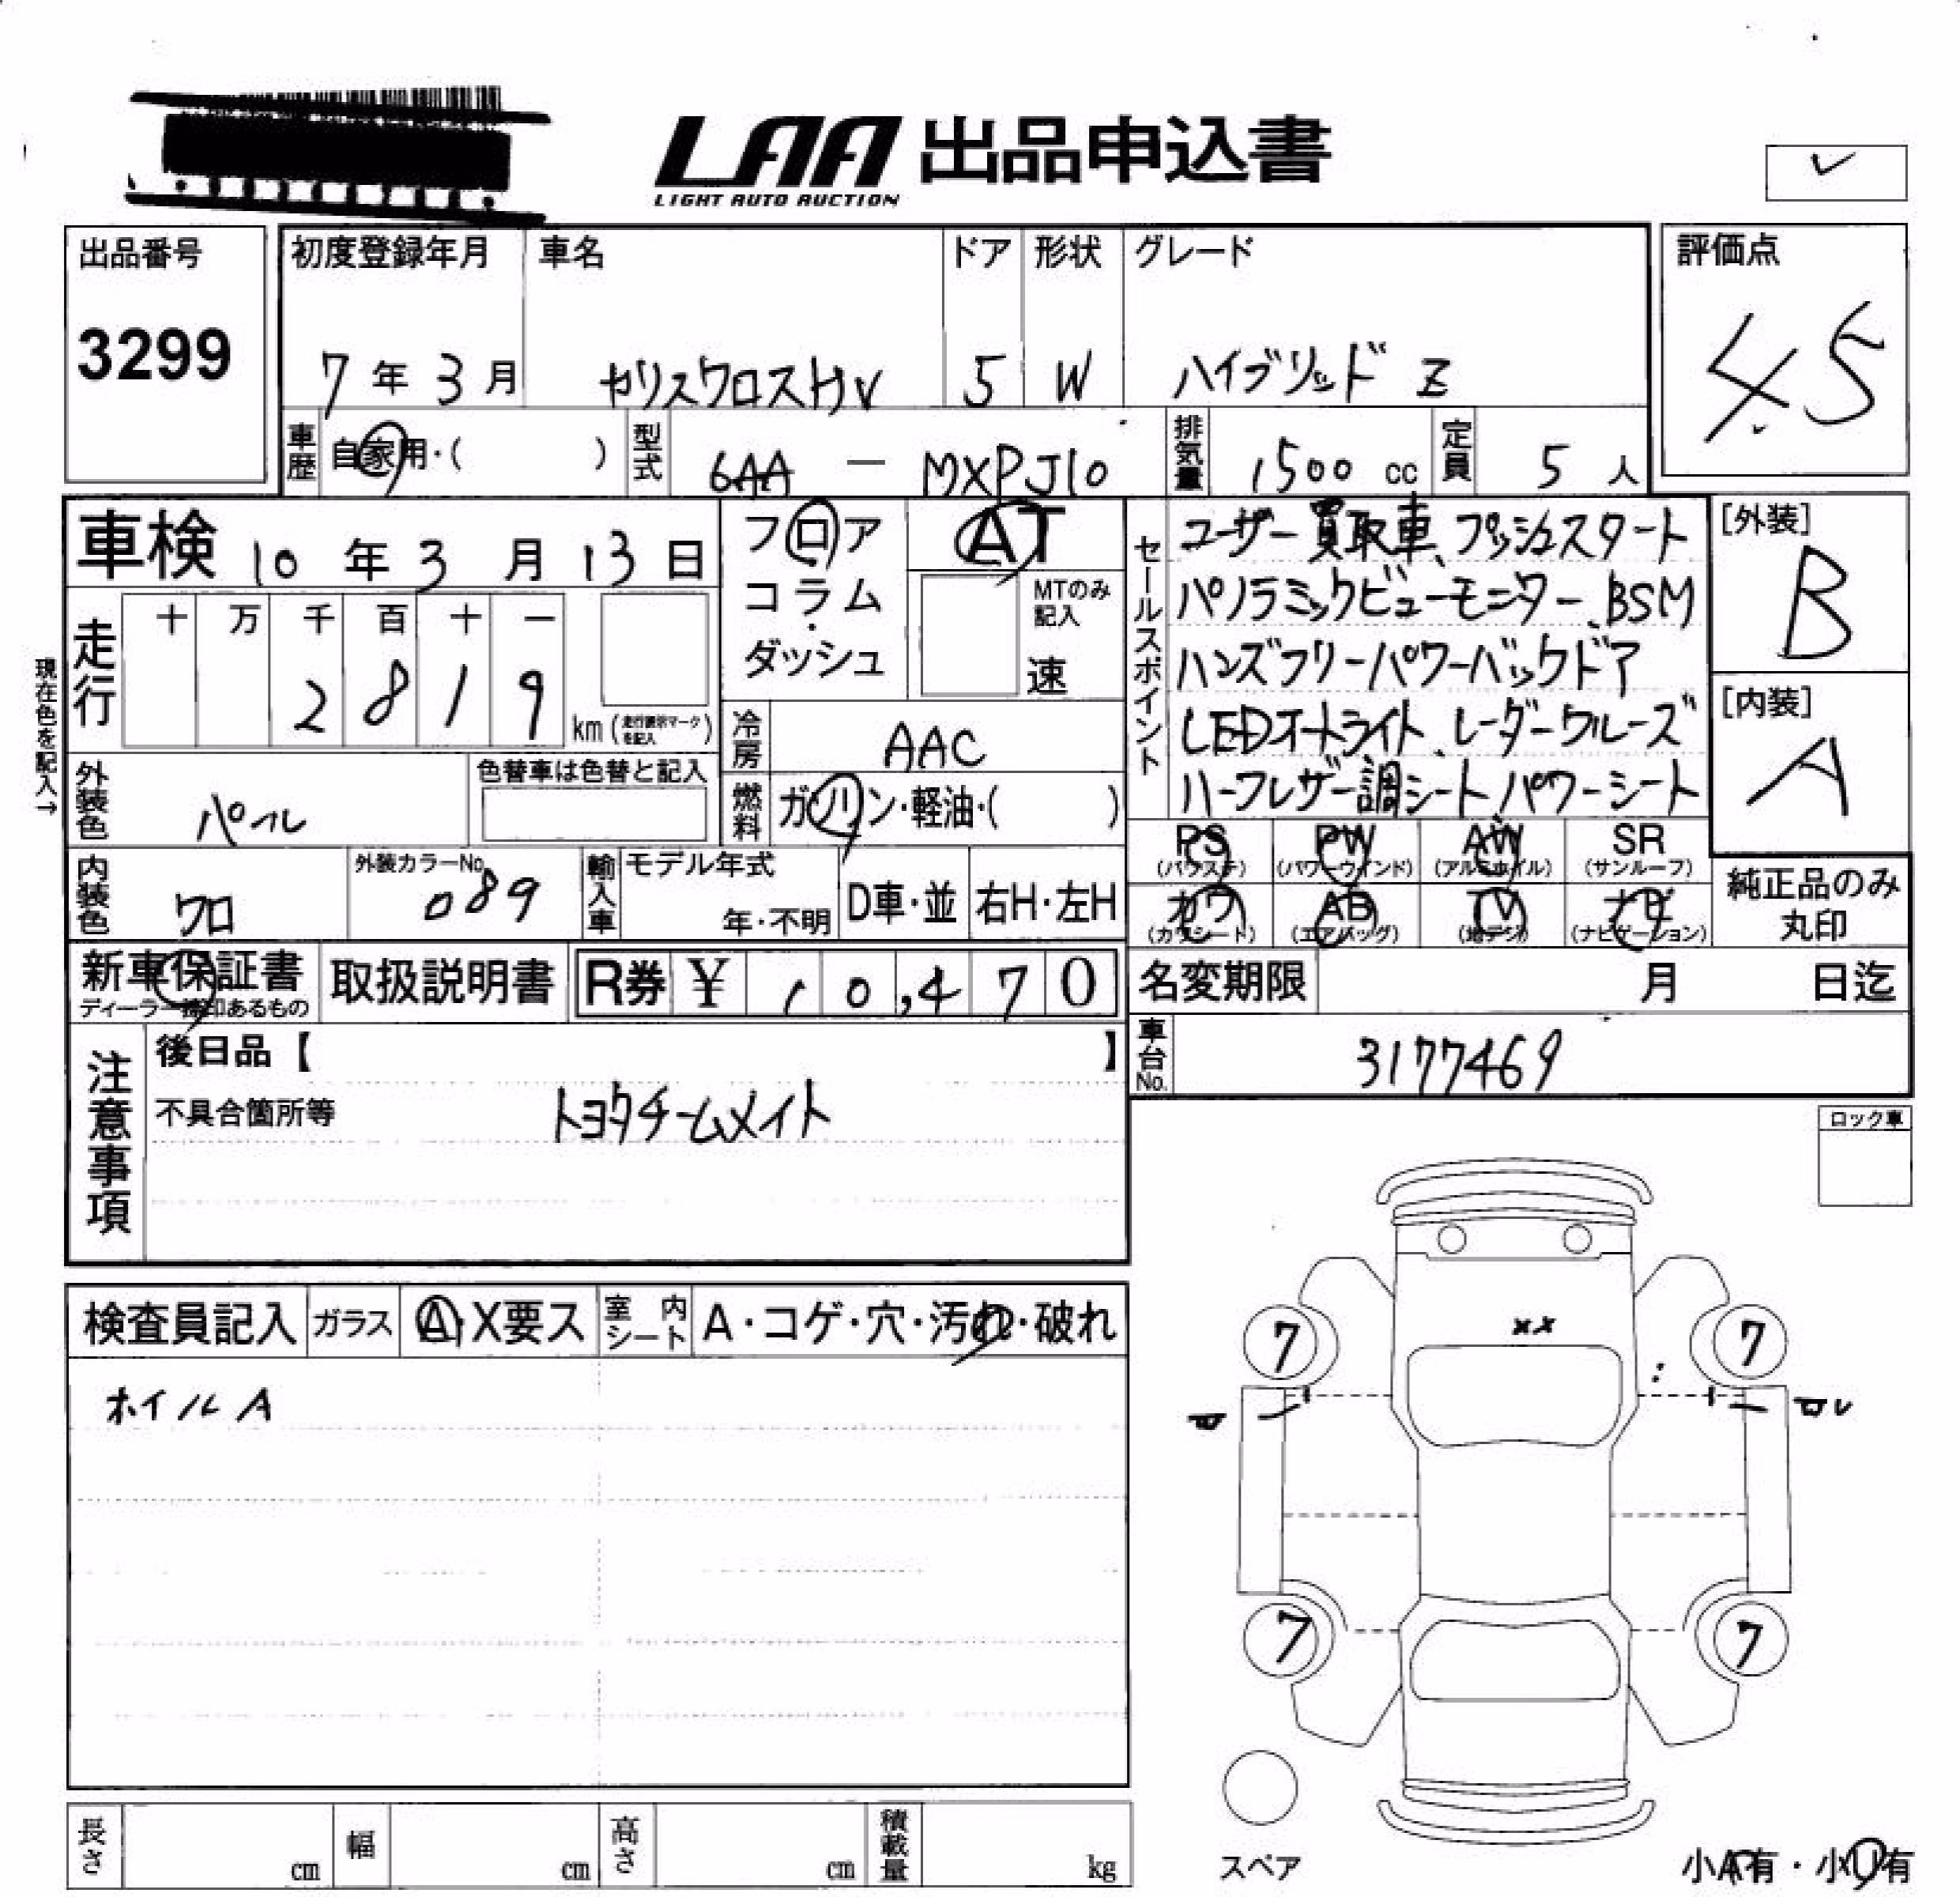 LAA 出品申込書
LIGHT AUTO AUCTION
出品番号
3299
初度登録年月
7年3月
車名
ヤリスクロスHV
ドア
5
形状
W
グレード
ハイブリッド Z
評価点
4.5
車歴
自家用・( )
型式
6AA - MXPJ10
排気量
1500 cc
定員
5 人
車検 10年3月13日
フロア
コラム
・
ダッシュ
AT
MTのみ
記入
速
セールスポイント
ユーザー買取車、プッシュスタート
パノラミックビューモニター、BSM
ハンズフリーパワーバックドア
LEDオートライト、レーダークルーズ
ハーフレザー調シート、パワーシート
[外装]
B
[内装]
A
現在色を記入→
走行
十 万 千 百 十 一
2 8 1 9
km (走行表示マークを記入)
冷房
AAC
外装色
パール
色替車は色替と記入
燃料
ガソリン・軽油・( )
内装色
クロ
外装カラーNo.
089
輸入車
モデル年式
年・不明
D車・並
右H・左H
PS
(パワステ)
PW
(パワーウインド)
AW
(アルミホイル)
SR
(サンルーフ)
カワ
(カワシート)
AB
(エアバッグ)
TV
(地デジ)
ナビ
(ナビゲーション)
純正品のみ
丸印
新車保証書
ディーラー捺印あるもの
取扱説明書
R券 ¥ 10,470
名変期限 月 日迄
注意事項
後日品【 】
不具合箇所等
トヨタチームメイト
車台No.
3177469
ロック車
検査員記入
ガラス
A・X要ス
室内シート
A・コゲ・穴・汚れ・破れ
ホイルA
XX
7
7
7
7
スペア
長さ
cm
幅
cm
高さ
cm
積載量
kg
小A有・小U有